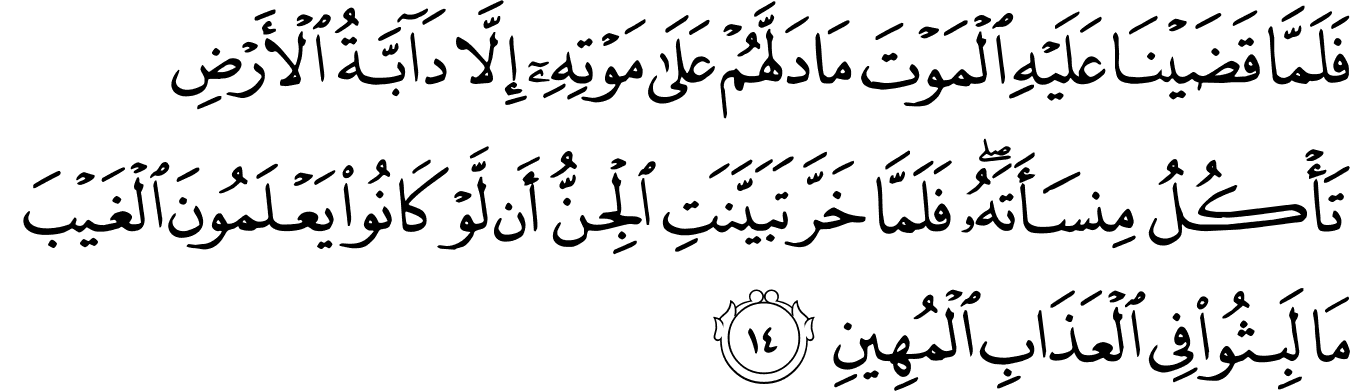 فَلَمَّا قَضَيْنَا عَلَيْهِ ٱلْمَوْتَ مَا دَلَّهُمْ عَلَىٰ مَوْتِهِۦٓ إِلَّا دَآبَّةُ ٱلْأَرْضِ
تَأْكُلُ مِنسَأَتَهُۥ ۖ فَلَمَّا خَرَّ تَبَيَّنَتِ ٱلْجِنُّ أَن لَّوْ كَانُوا۟ يَعْلَمُونَ ٱلْغَيْبَ
مَا لَبِثُوا۟ فِى ٱلْعَذَابِ ٱلْمُهِينِ ١٤